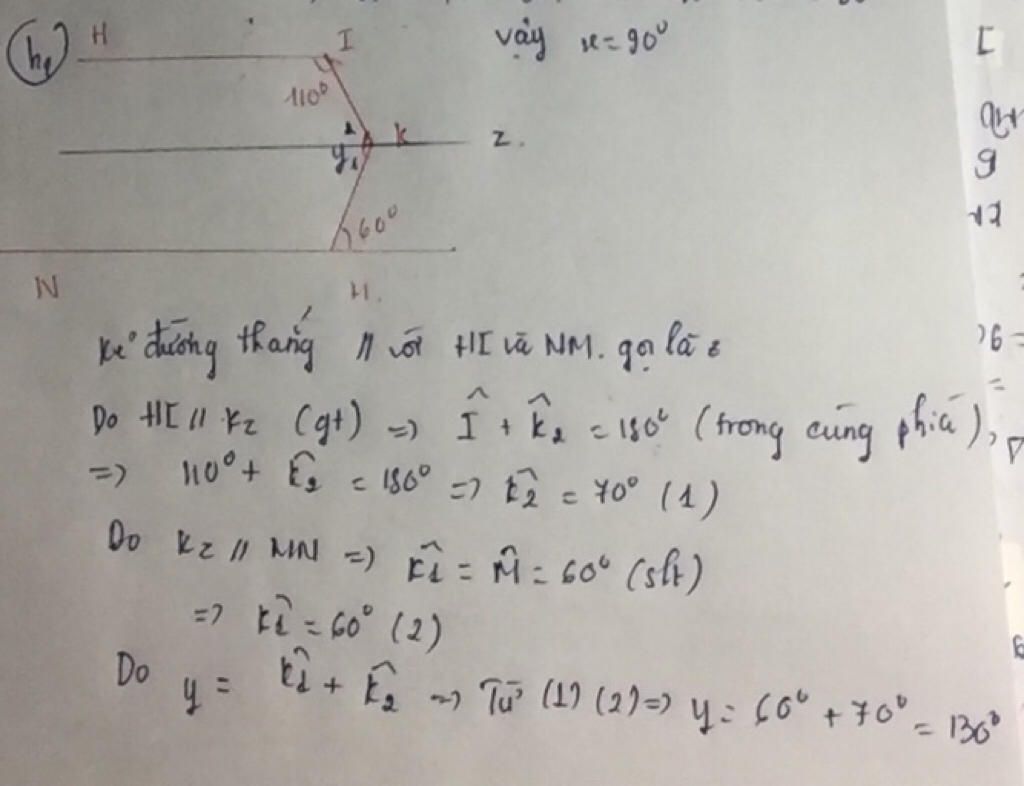 h₁ H I vậy x = 90°
110°
2 K z.
y 1
60°
N M.
Kẻ đường thẳng // với HI và NM. gọi là z
Do HI // Kz (gt) => Î + K̂₂ = 180° (trong cùng phía),
=> 110° + K̂₂ = 180° => K̂₂ = 70° (1)
Do Kz // MN => K̂1 = M̂ = 60° (slt)
=> K̂1 = 60° (2)
Do y = K̂1 + K̂₂ => Từ (1) (2) => y = 60° + 70° = 130°